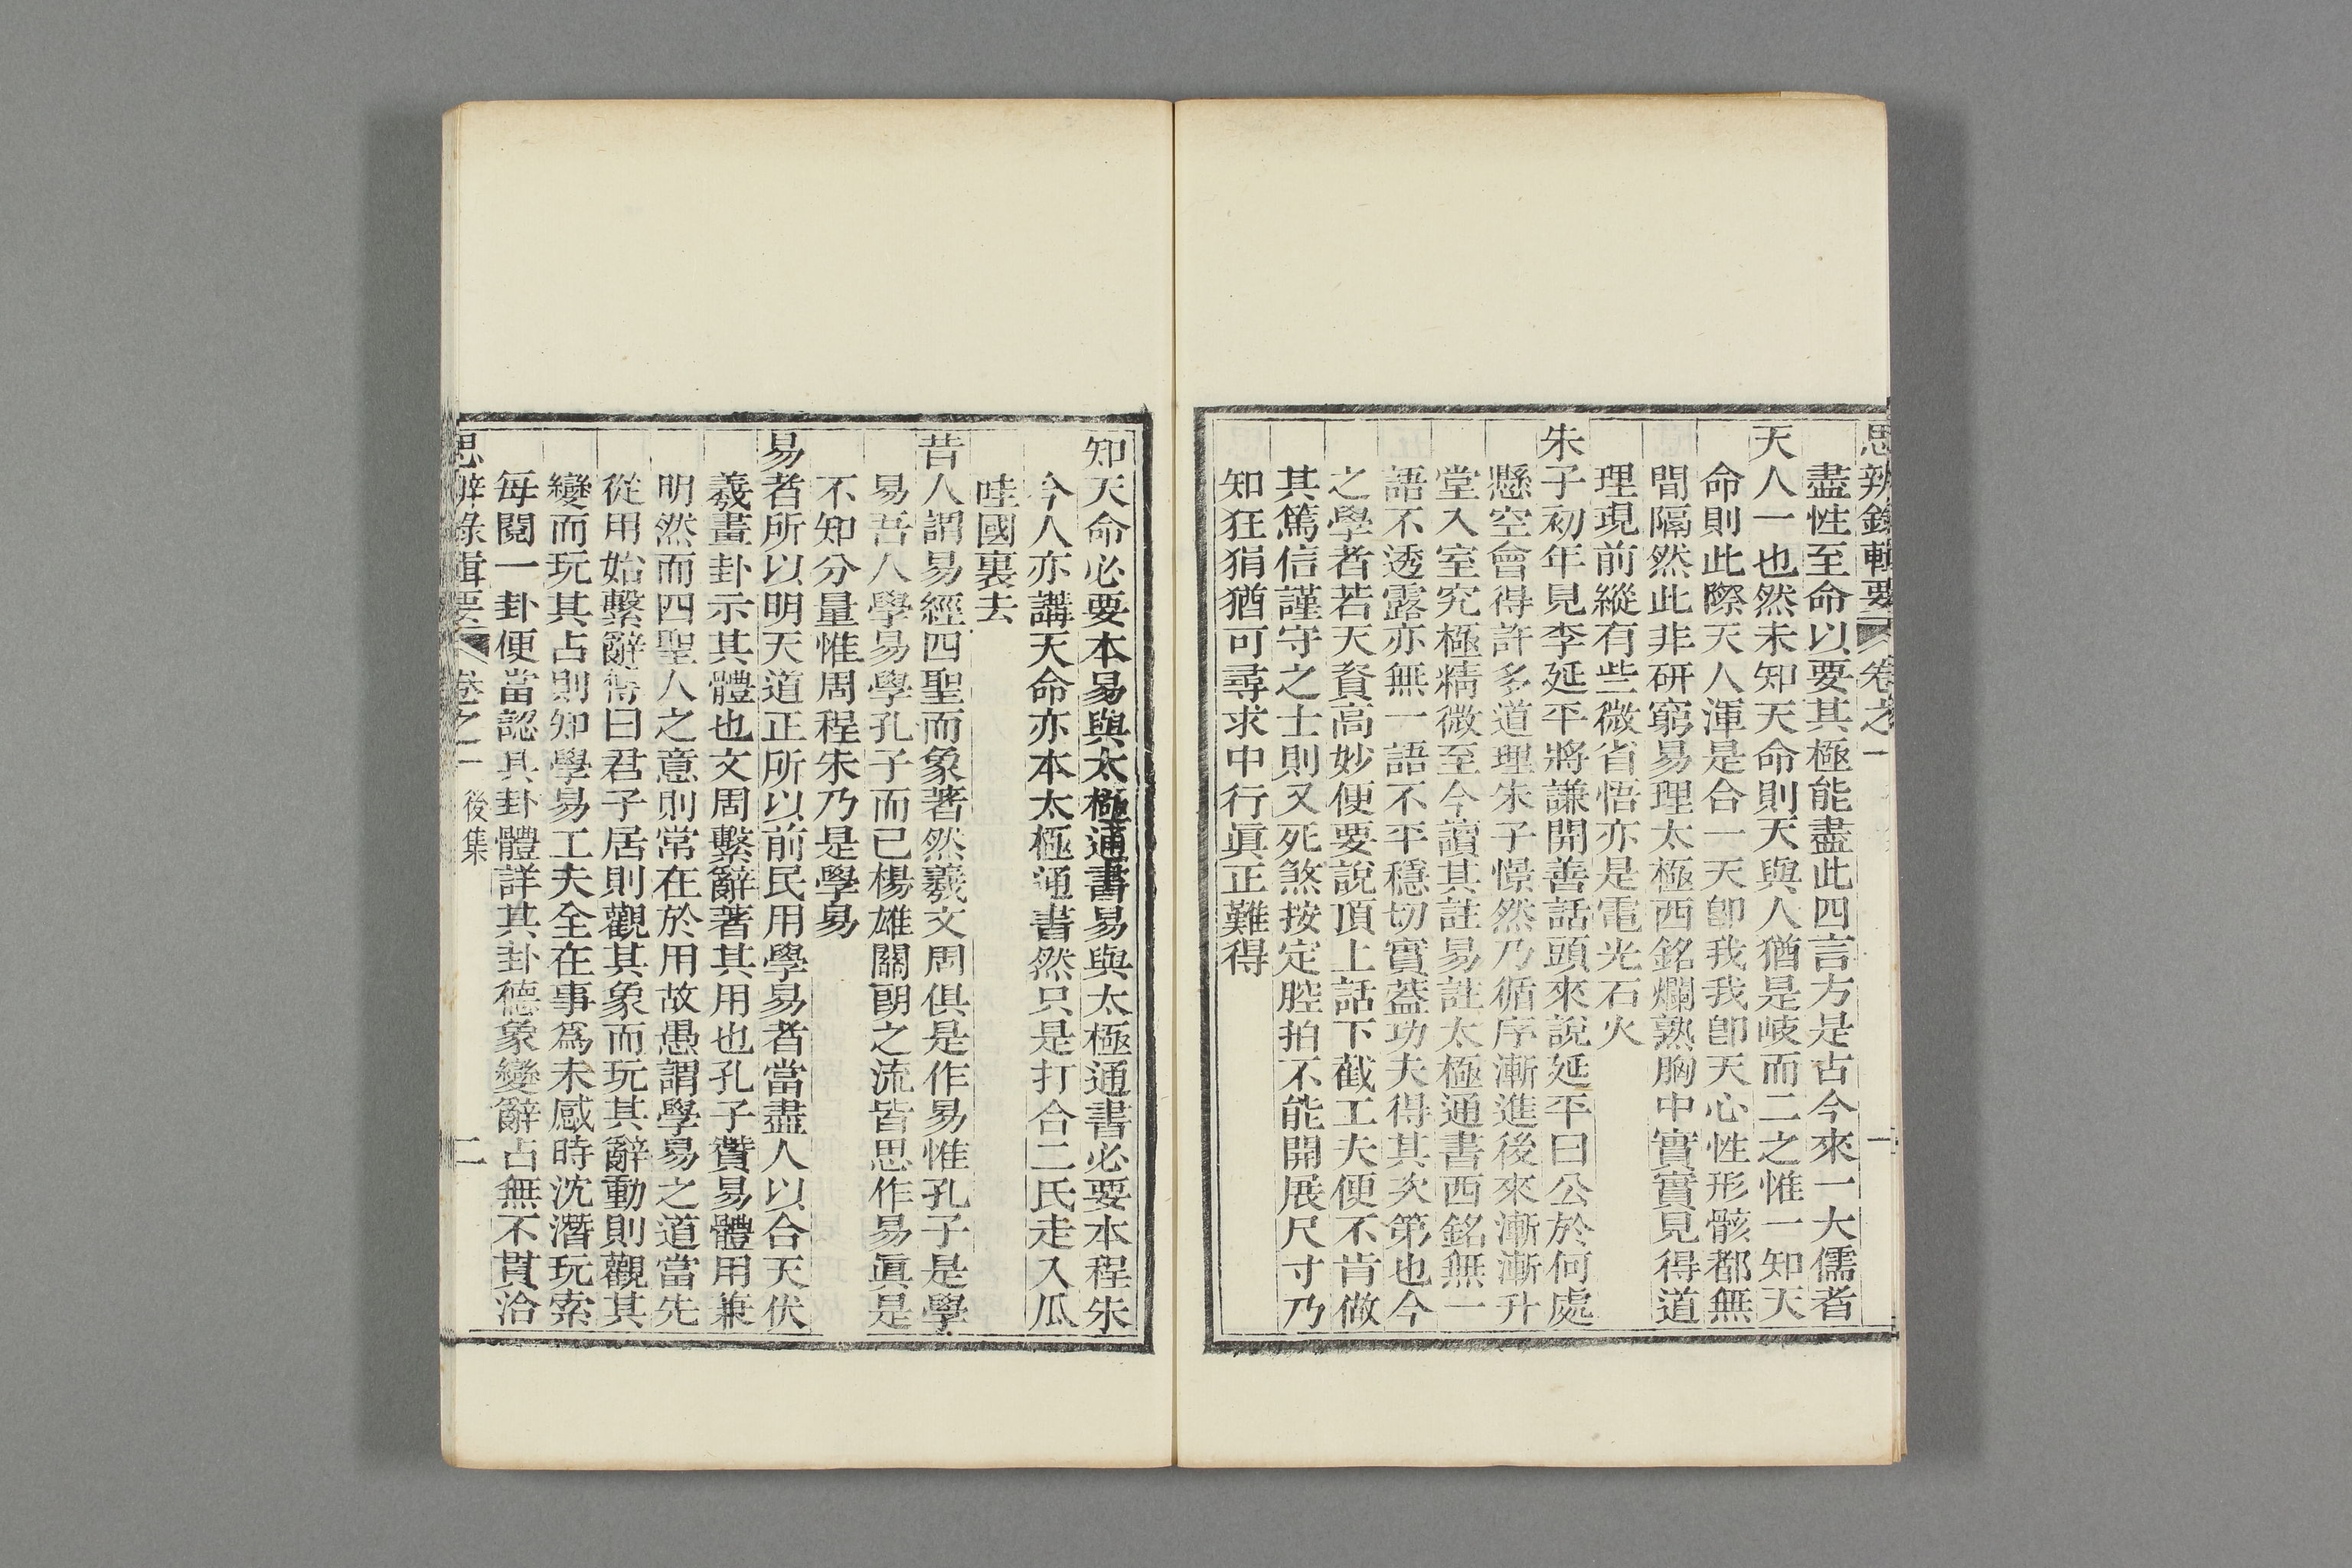 思辨錄輯要 卷之一 一
盡性至命以要其極能盡此四言方是古今來一大儒者
天人一也然未知天命則天與人猶是岐而二之惟一知天
命則此際天人渾是合一天卽我我卽天心性形骸都無
間隔然此非研窮易理太極西銘爛熟胸中實實見得道
理現前縱有些微省悟亦是電光石火
朱子初年見李延平將謙開善話頭來說延平曰公於何處
懸空會得許多道理朱子憬然乃循序漸進後來漸漸升
堂入室究極精微至今讀其註易註太極通書西銘無一
語不透露亦無一語不平穩切實蓋功夫得其次第也今
之學者若天資高妙便要說頂上話下截工夫便不肯做
其篤信謹守之士則又死煞按定腔拍不能開展尺寸乃
知狂狷猶可尋求中行眞正難得
知天命必要本易與太極通書易與太極通書必要本程朱
今人亦講天命亦本太極通書然只是打合二氏走入瓜
哇國裏去
昔人謂易經四聖而象著然羲文周俱是作易惟孔子是學
易吾人學易學孔子而已楊雄關朗之流皆思作易眞是
不知分量惟周程朱乃是學易
易者所以明天道正所以前民用學易者當盡人以合天伏
羲畫卦示其體也文周繫辭著其用也孔子贊易體用兼
明然而四聖人之意則常在於用故愚謂學易之道當先
從用始繫辭傳曰君子居則觀其象而玩其辭動則觀其
變而玩其占則知學易工夫全在事爲未感時沈潛玩索
每閱一卦便當認其卦體詳其卦德象變辭占無不貫洽
思辨錄輯要 卷之一 後集 二